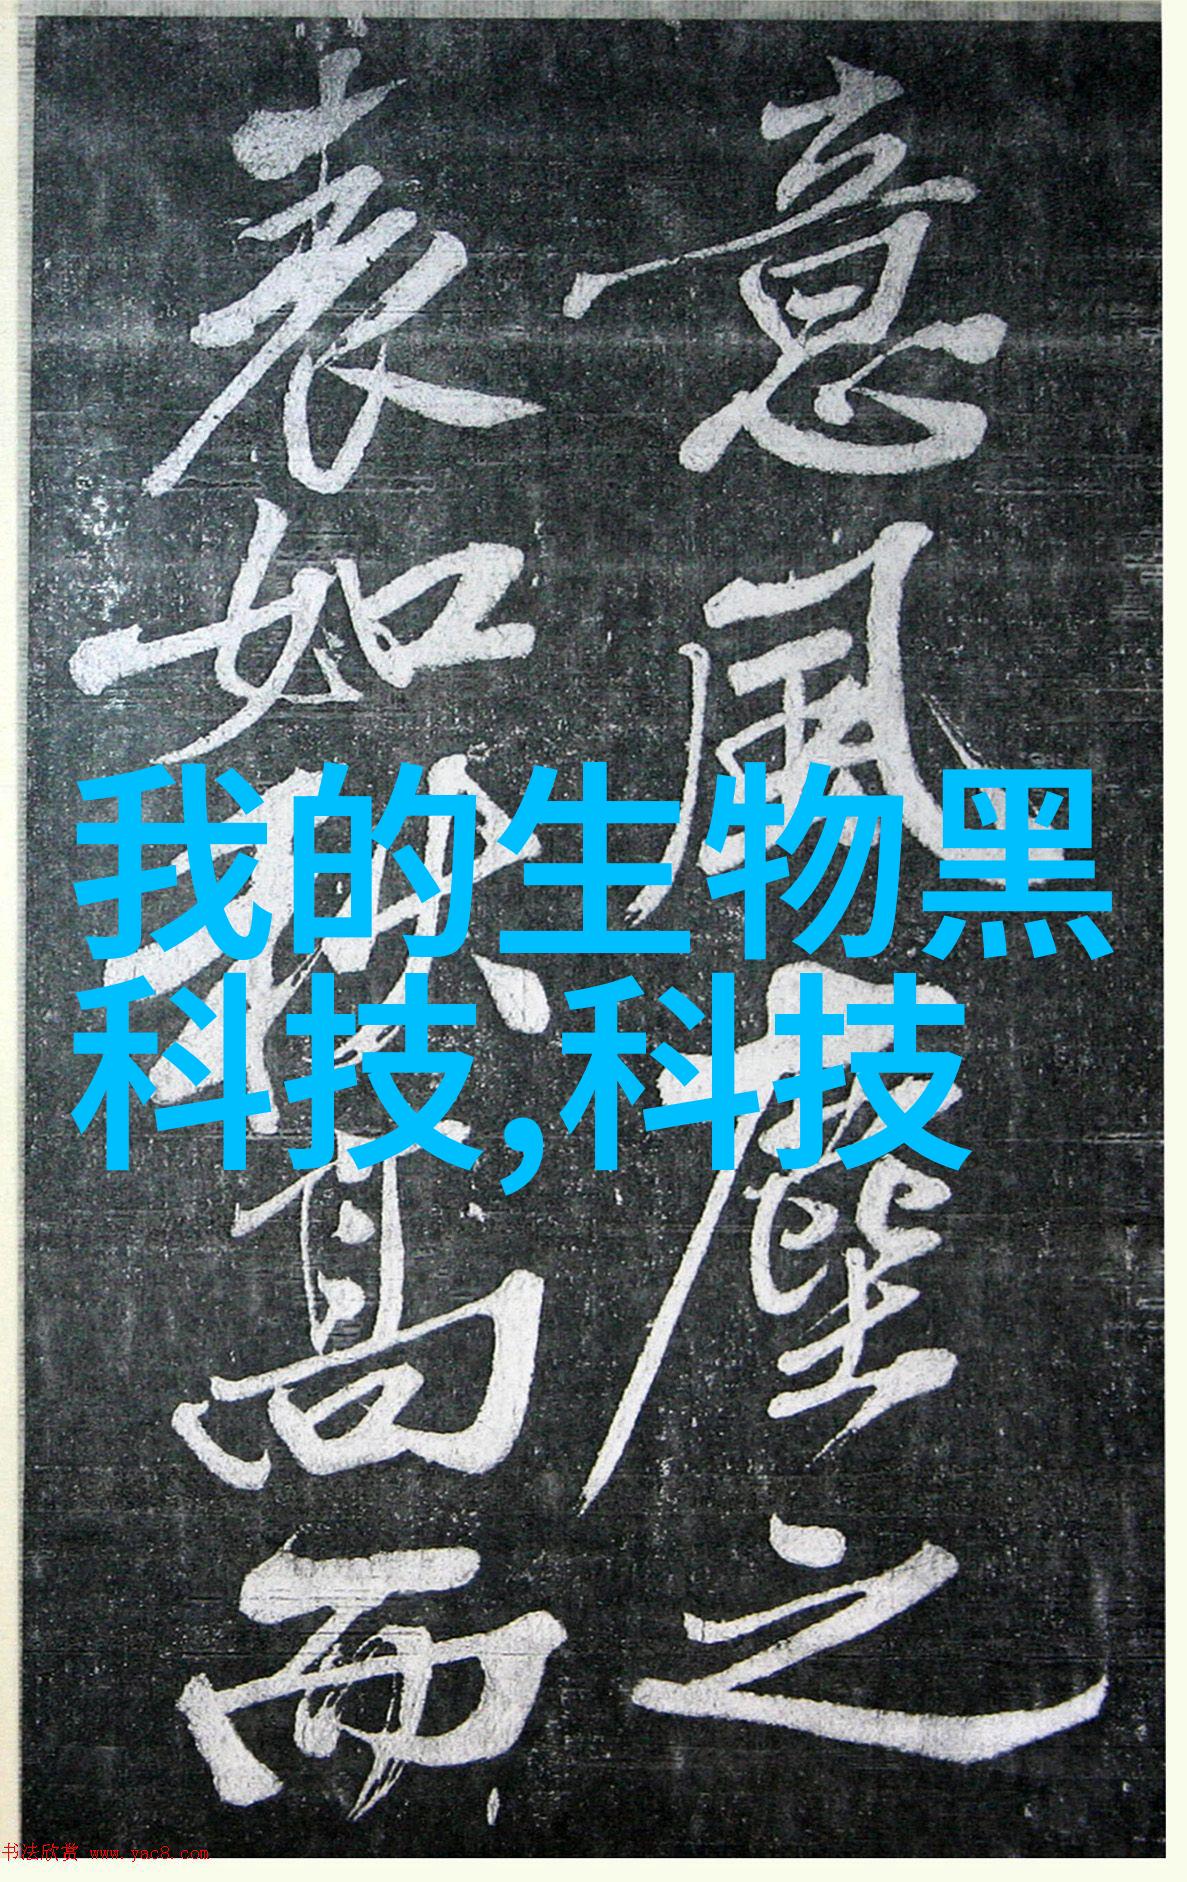 我的生物黑
科技,科技
意風塵之
表如秋高而
书法欣赏 www.yac8.com